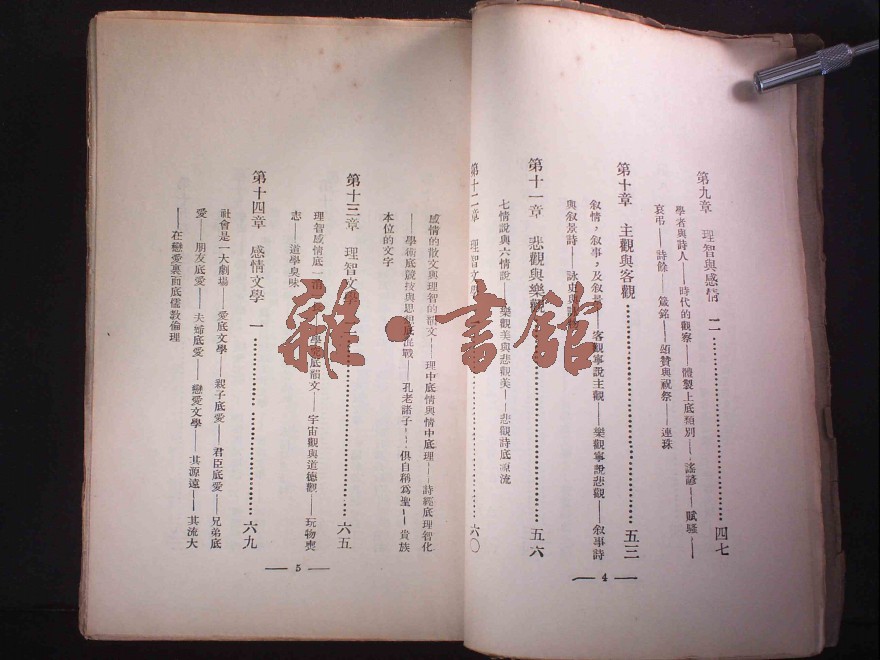 第九章　理智與感情　二………………四七
學者與詩人——時代的觀察——體製上底類別——謠諺——賦騷——
哀弔——詩餘——箴銘——頌贊與祝祭——連珠
第十章　主觀與客觀………………五三
叙情，叙事，及叙景——客觀寧說主觀——樂觀寧說悲觀——叙事詩
與叙景詩——詠史與
第十一章　悲觀與樂觀………………五六
七情說與六情說——樂觀美與悲觀美——悲觀詩底源流
第十二章　理智文學………………六〇
— 4 —
感情的散文與理智的韻文——理中底情與情中底理——詩經底理智化
——學術底競技與思想底混戰——孔老諸子——俱自稱爲聖——貴族
本位的文字
第十三章　理智文學………………六五
理智感情底一消一——學究底韻文——宇宙觀與道德觀——玩物喪
志——道學臭味
第十四章　感情文學　一………………六九
社會是一大劇場——愛底文學——親子底愛——君臣底愛——兄弟底
愛——朋友底愛——夫婦底愛——戀愛文學——其源遠——其流大
——在戀愛裏面底儒敎倫理
— 5 —
雜·書館